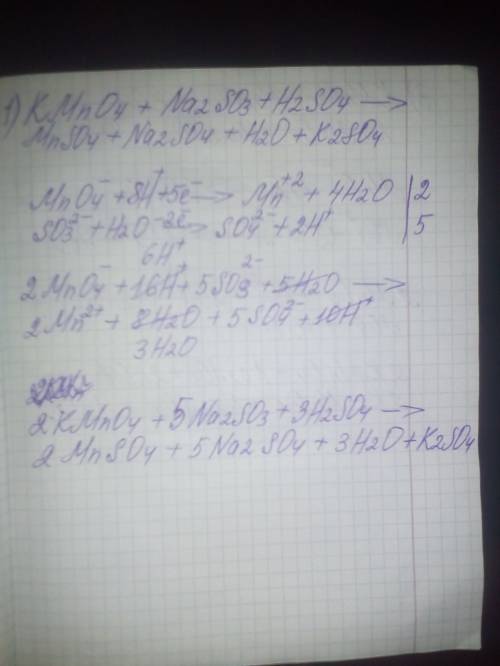 1) KMnO4 + Na2SO3 + H2SO4 →
MnSO4 + Na2SO4 + H2O + K2SO4
MnO4⁻ + 8H⁺ + 5e⁻ → Mn⁺² + 4H2O | 2
SO3²⁻ + H2O −2e⁻ → SO4²⁻ + 2H⁺ | 5
6H⁺
2MnO4⁻ + 16H⁺ + 5SO3²⁻ + 5H2O →
2Mn²⁺ + 8H2O + 5SO4²⁻ + 10H⁺
3H2O
2KMnO4 + 5Na2SO3 + 3H2SO4 →
2MnSO4 + 5Na2SO4 + 3H2O + K2SO4